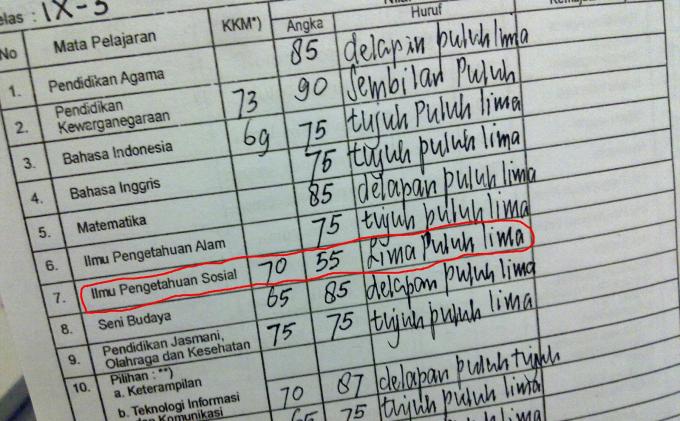 elas : IX-3
No Mata Pelajaran KKM*) Angka Huruf
85 delapin puluh lima
1. Pendidikan Agama 90 Sembilan Puluh
2. Pendidikan Kewarganegaraan 73 75 tujuh Puluh lima
3. Bahasa Indonesia 69 75 tujuh puluh lima
4. Bahasa Inggris 85 delapan puluh lima
5. Matematika 75 tujuh puluh lima
6. Ilmu Pengetahuan Alam
7. Ilmu Pengetahuan Sosial 70 55 Lima Puluh lima
8. Seni Budaya 65 85 delapan puluh lima
9. Pendidikan Jasmani, Olahraga dan Kesehatan 75 75 tujuh puluh lima
10. Pilihan : **)
a. Keterampilan 70 87 delapan puluh tujuh
b. Teknologi Informasi dan Komunikasi 65 75 tujuh puluh lima